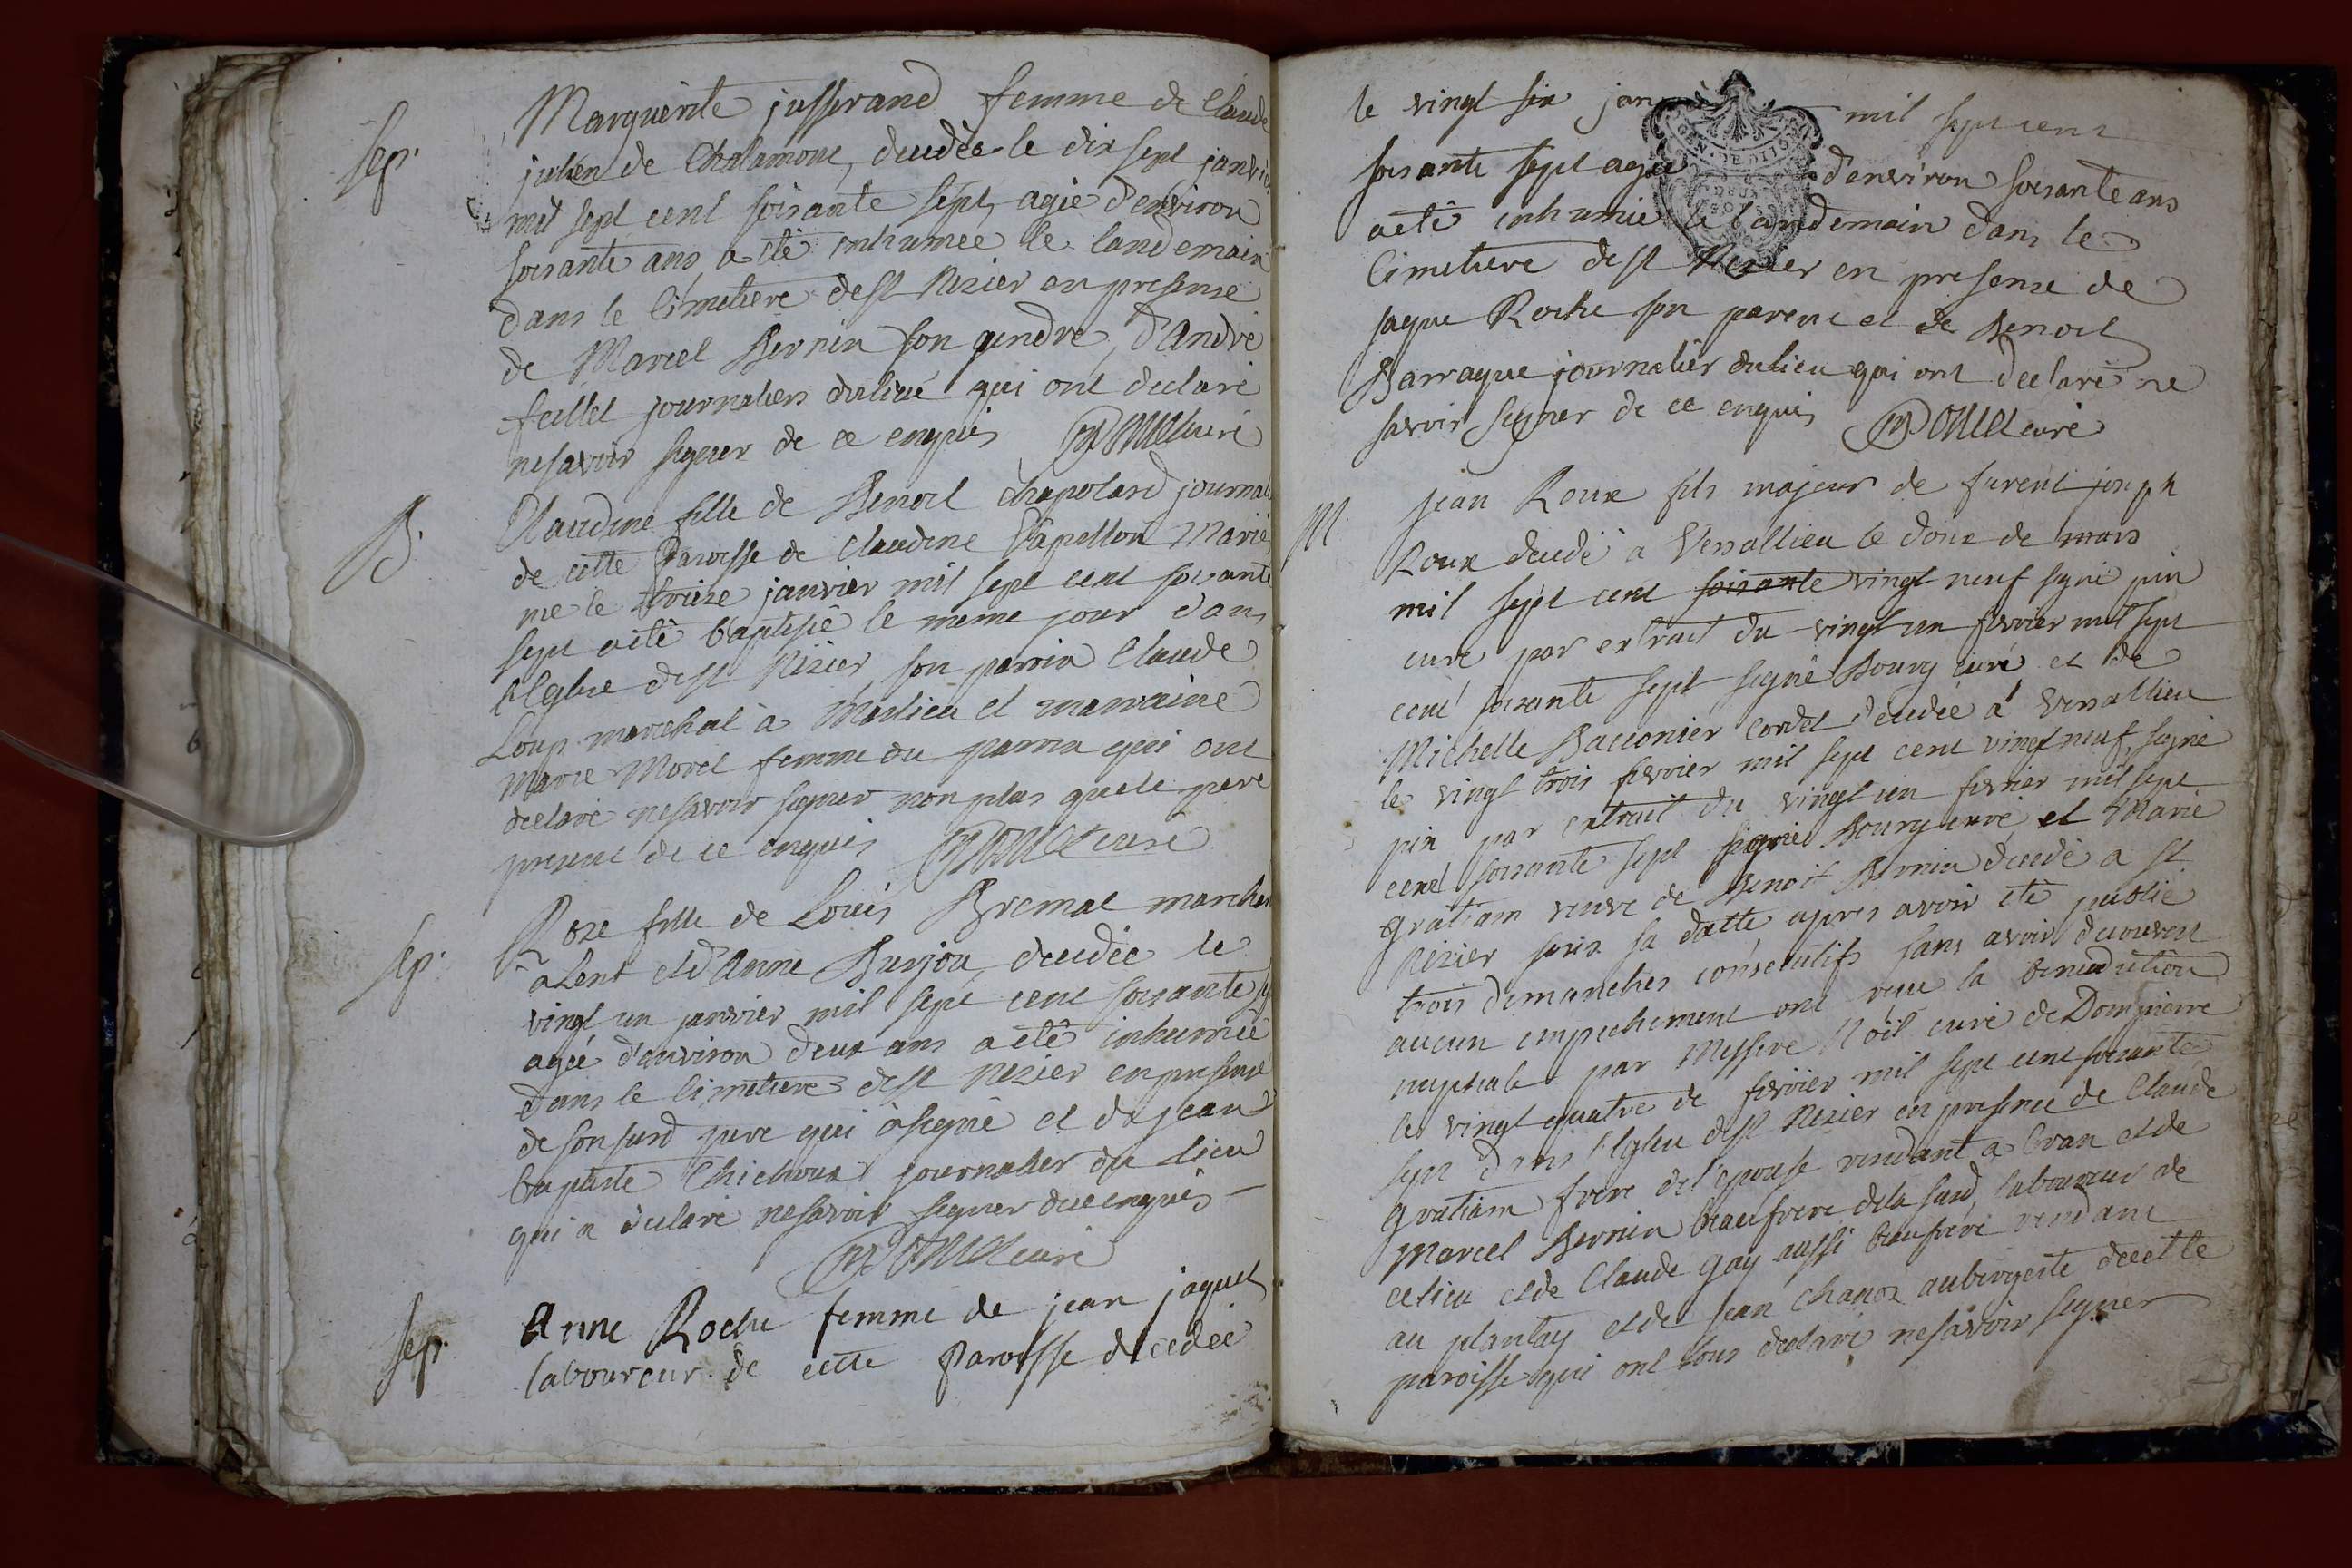 Sep.
Marguerite jusserand femme de Claude
julien de Chalamont, decedée le dix sept janvier
mil sept cent soisante sept, agée d'environ
soisante ans a été inhumée le landemain
dans le Cimetiere de st Nizier en presense
de Marcel Bernin son gendre, d'André
feillet journaliers dulieu qui ont declaré
nesavoir signer de ce enquis curé
B.
Claudine fille de Benoit Chapolard journal
de cette Paroisse de Claudine Papellon Mariés
née le treize janvier mil sept cent soisante
sept a été baptisée le meme jour dans
l'Eglise de st Nizier, son parrin Claude
Loup marechal à Marlieu et marraine
Marie Morel femme du parrin qui ont
declaré nesavoir signer non plus que le pere
present de ce enquis curé
Sep.
Roze fille de Louis Bremal marchand
a Lent et d'Anne Burjou, decedée le
vingt un janvier mil sept cent soisante s
agée d'environ deux ans a été inhumée
dans le Cimetiere de st Nizier en presense
de son surd pere qui a signé et de jean
baptiste Chichoux journalier du lieu
qui a declaré nesavoir signer de ce enquis
curé
Sep.
Anne Roche femme de jean jaquet
laboureur de cette Paroisse decedée
le vingt six jan mil sept cent
soisante sept agée d'environ soisante ans
a été inhumée le landemain dans le
Cimetiere de st Nizier en presense de
jaque Roche son parent et de Benoit
Barraque journalier dulieu qui ont declaré ne
savoir signer de ce enquis curé
M.
jean Roux fils majeur de furent joseph
Roux decedé a Versallieu le douze de mars
mil sept cent soisante vingt neuf signé pin
curé par extrait du vingt un fevrier mil sept
cent soisante sept signé Bourg curé et de
Michelle Baconier Cordet decedée à Versallieu
le vingt trois fevrier mil sept cent vingt neuf signé
pin par extrait du vingt un fevrier mil sept
cent soisante sept signé Bourg curé et Marie
gratiam veuve de Benoit Bernin decedé a st
Nizier sous sa datte apres avoir été publié
trois dimanches consecutifs sans avoir decouvert
aucun empechement ont reçu la benediction
nuptiale par Messire Noël curé de Dompierre
le vingt quatre de fevrier mil sept cent soisante
sept dans l'Eglise de st Nizier en presence de Claude
gratiam frere del'epouse residant a Cran et de
Marcel Bernin beaufrere dela surd laboureur de
ce lieu et de Claude Gay aussi beaufrere residant
au plantay et de jean Chanoz aubergeste de cette
paroisse qui ont tous declaré nesavoir signer